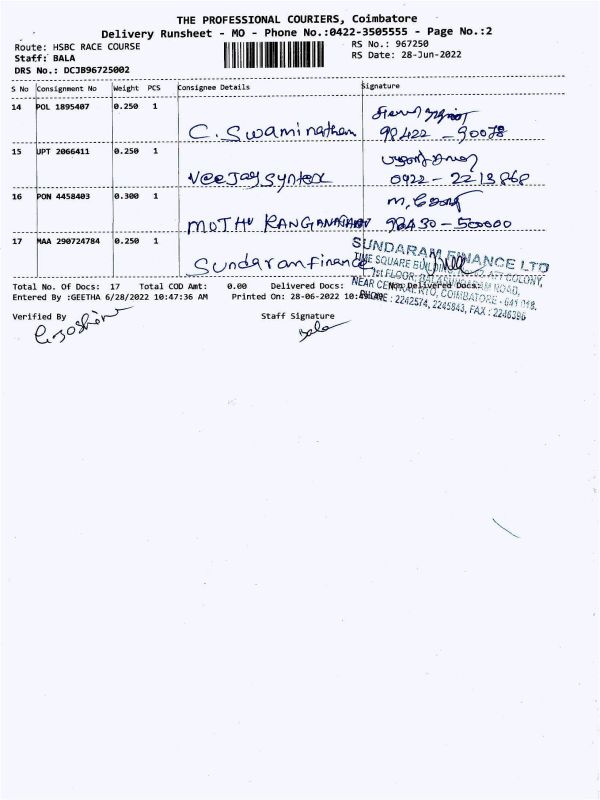 THE PROFESSIONAL COURIERS, Coimbatore
Delivery Runsheet - MO - Phone No.:0422-3505555 - Page No.:2
Route: HSBC RACE COURSE
RS No.: 967250
Staff: BALA
RS Date: 28-Jun-2022
DRS No.: DCJB96725002
S No Consignment No Weight PCS Consignee Details Signature
14 POL 1895407 0.250 1
C. Swaminathan 98422 - 90078
15 UPT 2066411 0.250 1
VeeJay Syntex 0422 - 2213868
16 PON 4458403 0.300 1
MOTHU RANGANATHAN 98430 - 500000
17 MAA 290724784 0.250 1
Sundaram finance
SUNDARAM FINANCE LTD
TIME SQUARE BUILDING
COLONY,
1st FLOOR, BALASUNDARAM ROAD,
NEAR CENTRAL RTO, COIMBATORE - 641 018.
PHONE : 2242574, 2245843, FAX : 2246396
Total No. Of Docs: 17 Total COD Amt: 0.00 Delivered Docs: Non Delivered Docs:
Entered By :GEETHA 6/28/2022 10:47:36 AM Printed On: 28-06-2022
Verified By Staff Signature
Bala